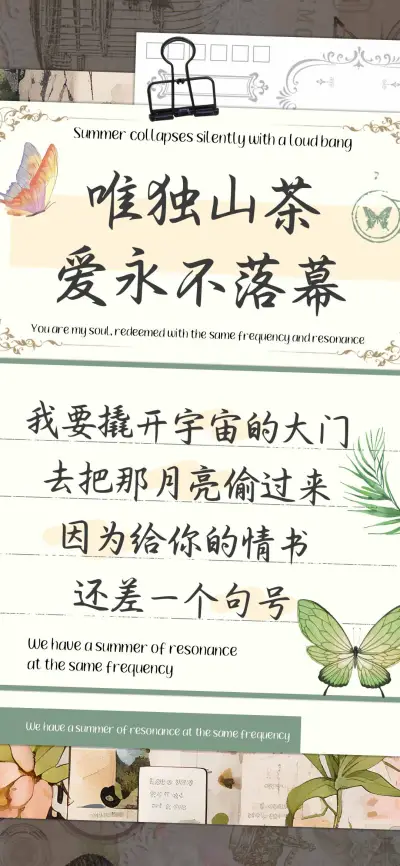 Summer collapses silently with a loud bang
唯独山茶
爱永不落幕
You are my soul, redeemed with the same frequency and resonance
我要撬开宇宙的大门
去把那月亮偷过来
因为给你的情书
还差一个句号
We have a summer of resonance
at the same frequency
We have a summer of resonance at the same frequency